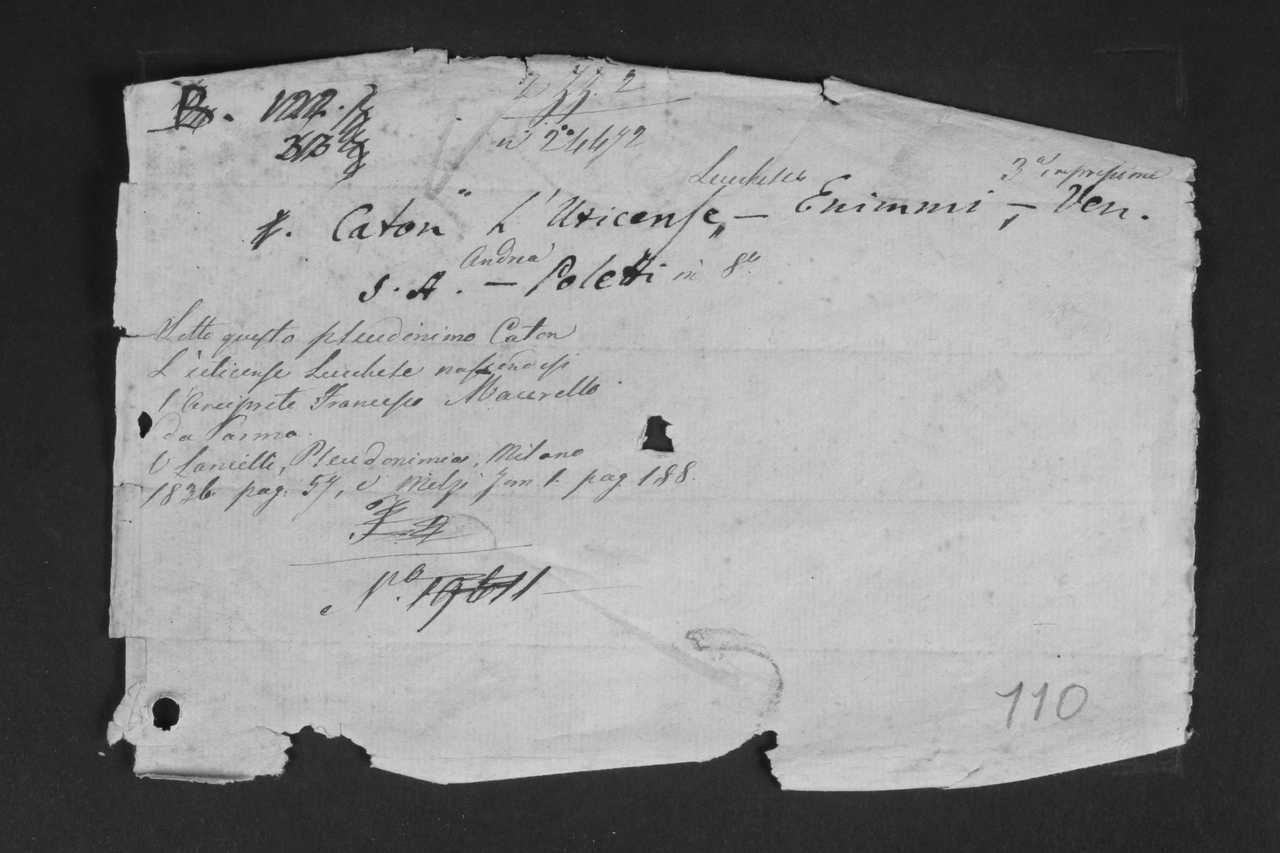 B. 122.
n° 24472
Lucchese 3a impressione
Caton" L'Uticense„ — Enimmi, — Ven.
Andrea
s. A. — Poletti in 8°
Sotto questo pseudonimo Caton
L'uticense Lucchese nascondesi
l'Arciprete Francesco Macerello
da Parma.
V Lancetti, Pseudonimia, Milano
1836 pag. 57, v Melzi Tom 1. pag 188.
N.° 19611
110